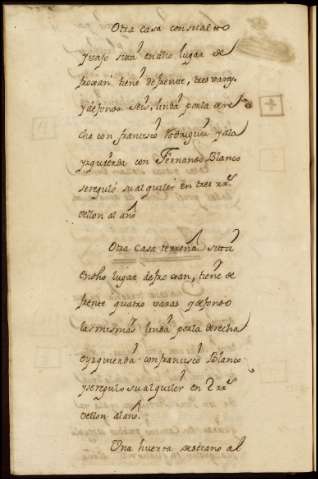 Otra casa con su alto
y vajo sita en dho lugar de
tiene de frente, tres varas
y de fondo seis, linda por la dere
cha con francisco Rodriguez y a la
yzquierda con Fernando Blanco
se reguló su alquiler en tres rs
vellon al año
Otra casa terrena sita
en dho lugar de tiene de
frente quatro varas y de fondo
las mismas linda por la derecha
e yzquierda con francisco Blanco
y se reguló su alquiler en 2 rs
vellon al año.
Una huerta al